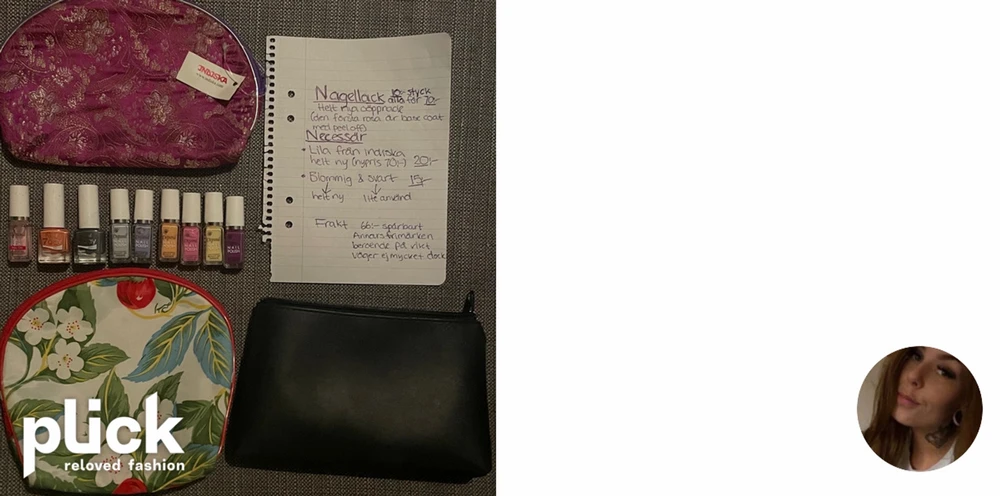 INDISKA
Nagellack 10:- styck
alla för 70:-
Helt nya oöppnade
(den första rosa är base coat
med peel off)
Necessär
• Lila från indiska
helt ny (nypris 70:-) 20:-
• Blommig & svart 15:-
helt ny lite använd
Frakt 66:- spårbart
Annars frimärken
beroende på vikt
väger ej mycket dock
NAIL
POLISH
plick
reloved fashion